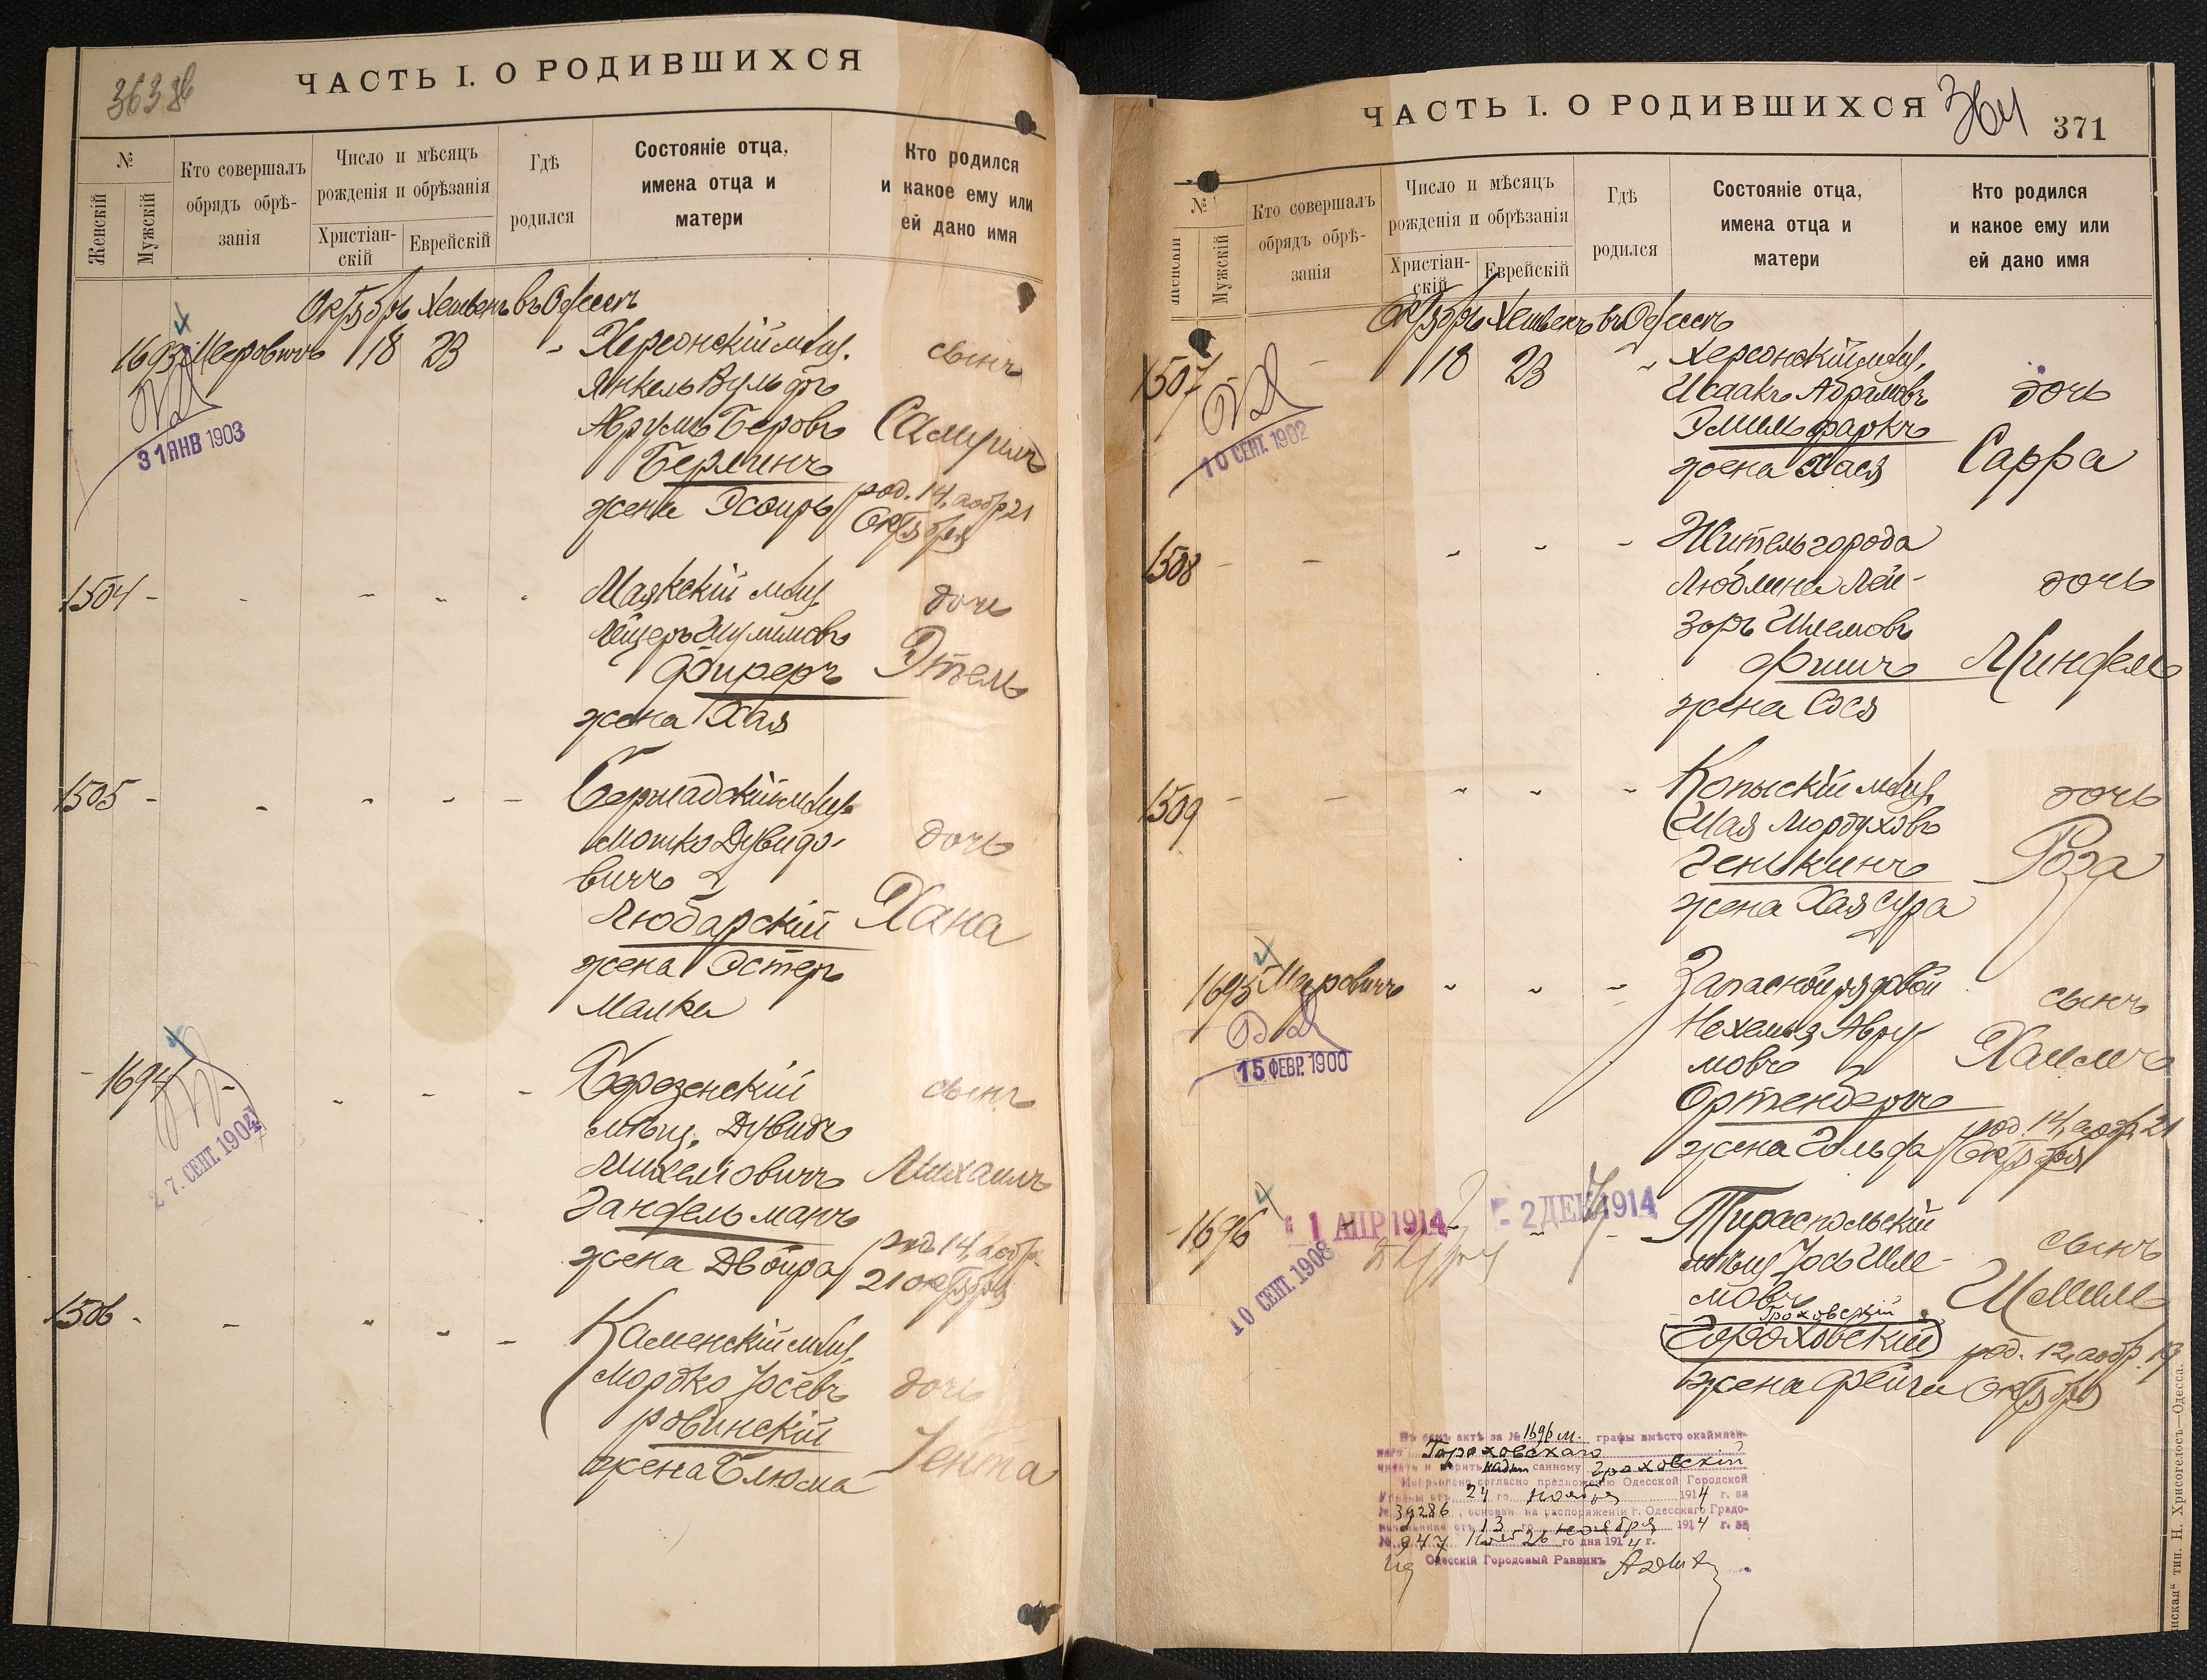 363 об
ЧАСТЬ I. О РОДИВШИХСЯ
№
Женскій
Мужскій
Кто совершалъ
обрядъ обрѣ-
занія
Число и мѣсяцъ
рожденія и обрѣзанія
Христіан-
скій
Еврейскій
Гдѣ
родился
Состояніе отца,
имена отца и
матери
Кто родился
и какое ему или
ей дано имя
Октябрь Хешвенъ въ Одессѣ
1693 Меровичъ 18 23 Херсонскій мѣщ. сынъ
Янкель Вульфъ
Аврумъ Беровъ Самуилъ
Берлинъ
жена Эсѳирь род. 14, а обр 21
Октября
31 ЯНВ 1903
1504 - Маякскій мѣщ дочь
Лейзеръ Шулимовъ
Фиреръ Этель
жена Хая
1505 - Бершадскій мѣщ.
Мошко Дувидо- дочь
вичъ
Любарскій Хана
жена Эстеръ
Малка
1694 - Березенскій сынъ
мѣщ. Дувидъ
Михелевичъ Михаилъ
Гандельманъ
жена Двойра род 14, а обр.
21 октября
27. СЕНТ. 1904
1506 - Каменскій мѣщ.
Мордко Іосевъ дочь
Ровинскій
жена Блюма Іента
ЧАСТЬ I. О РОДИВШИХСЯ 364 371
№
Женскій
Мужскій
Кто совершалъ
обрядъ обрѣ-
занія
Число и мѣсяцъ
рожденія и обрѣзанія
Христіан-
скій
Еврейскій
Гдѣ
родился
Состояніе отца,
имена отца и
матери
Кто родился
и какое ему или
ей дано имя
Октябрь Хешвенъ въ Одессѣ
1507 - 18 23 Херсонскій мѣщ.
Исаакъ Абрамовъ дочь
жена Хася Сарра
10 СЕНТ. 1902
1508 - Житель города
Люблина Лей- дочь
зоръ Шлемовъ
Фишъ Миндель
жена Сося
1509 - Копыскій мѣщ. дочь
Шая Мордуховъ
Генькинъ Роза
жена Хая Сура
1695 Меровичъ Запасной рядовой сынъ
Нехемья Авру-
мовъ Хаимъ
Ортенбергъ
жена Гольда род. 14, а обр. 21
Октября
15 ФЕВР. 1900
1696 1 АПР 1914 - 2 ДЕК 1914 Тираспольскій сынъ
мѣщ Іось Шле-
мовъ Шмиль
Гроховскій
Гороховскій род. 12, а обр. 19
жена Фейга Октября
10 СЕНТ. 1908
Въ семъ актѣ за № 1696 м. графы вмѣсто окаймлен-
наго Гороховскаго
читать и вѣрить надписанному Гроховскій
Исправлено согласно предложенію Одесской Городской
Управы отъ 24 го ноября 1914 г. за
№ 39286, основан. на распоряженіи г. Одесскаго Градо-
начальника отъ 13 го ноября 1914 г. за
№ 947 Нояб 26 го дня 1914 г.
Одесскій Городовый Раввинъ
нская“ тип. Н. Хрисогелосъ—Одесса.